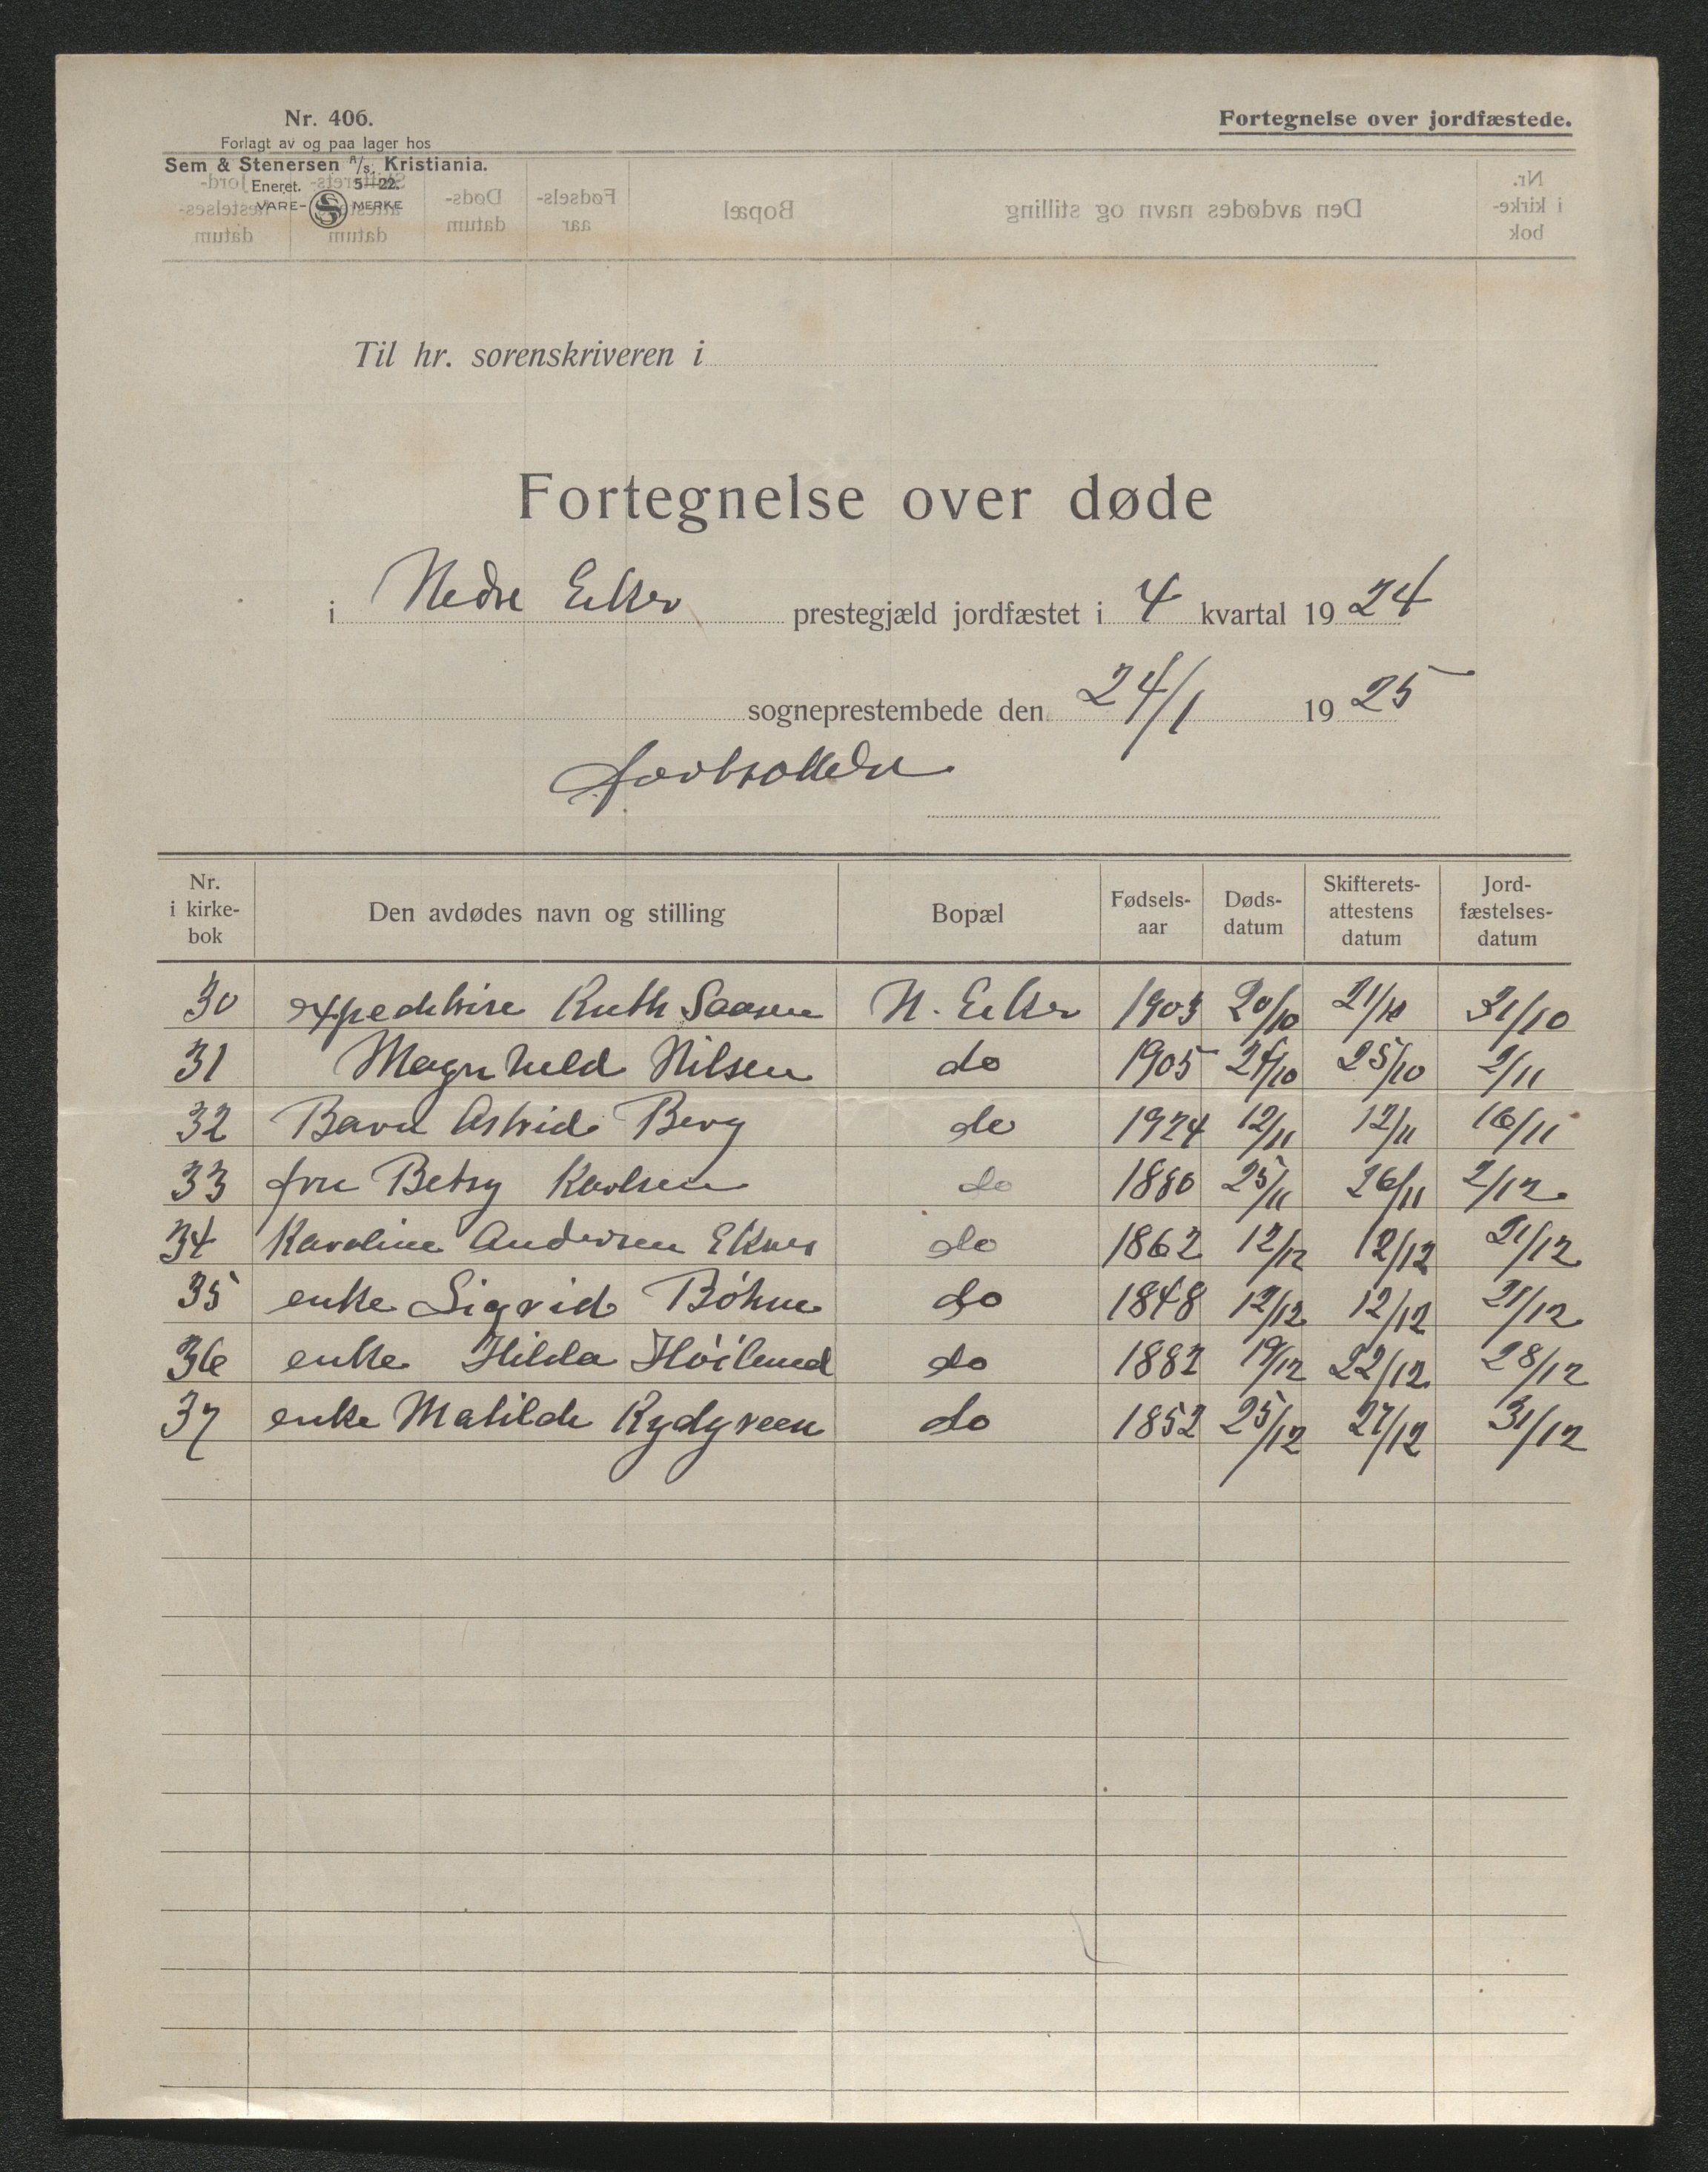 Nr. 406.
Forlagt av og paa lager hos
Sem & Stenersen A/s, Kristiania.
Eneret. 5—22.
VARE- MERKE
Fortegnelse over jordfæstede.
Til hr. sorenskriveren i
Fortegnelse over døde
i Nedre Eiker prestegjæld jordfæstet i 4 kvartal 1924
sogneprestembede den 24/1 1925
Nr. i kirke-bok | Den avdødes navn og stilling | Bopæl | Fødsels-aar | Døds-datum | Skifterets-attestens datum | Jord-fæstelses-datum
30 expeditrise Ruth Saasen N. Eiker 1903 20/10 21/10 31/10
31 Magnhild Nilsen do 1905 24/10 25/10 2/11
32 Barn Astrid Berg do 1924 12/11 12/11 16/11
33 fru Betsy Karlsen do 1880 25/11 26/11 2/12
34 Karoline Andersen Eknes do 1862 12/12 12/12 21/12
35 enke Sigrid Bøhm do 1848 12/12 12/12 21/12
36 enke Hilda Höilund do 1882 19/12 22/12 28/12
37 enke Matilde Rydgreen do 1852 25/12 27/12 31/12